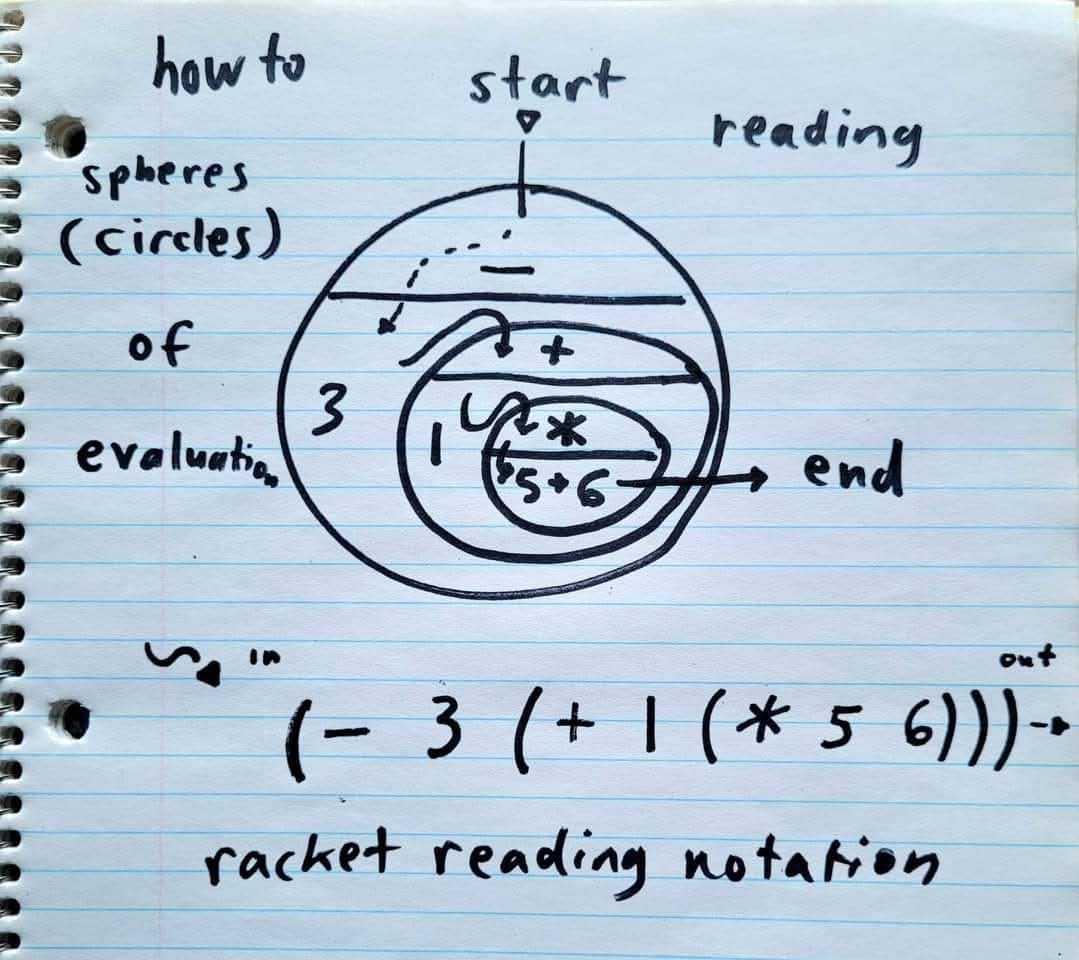 how to
start
reading
spheres
(circles)
of
evaluation
-
+
3
1
*
5 6
end
in
out
(- 3 (+ 1 (* 5 6)))
racket reading notation